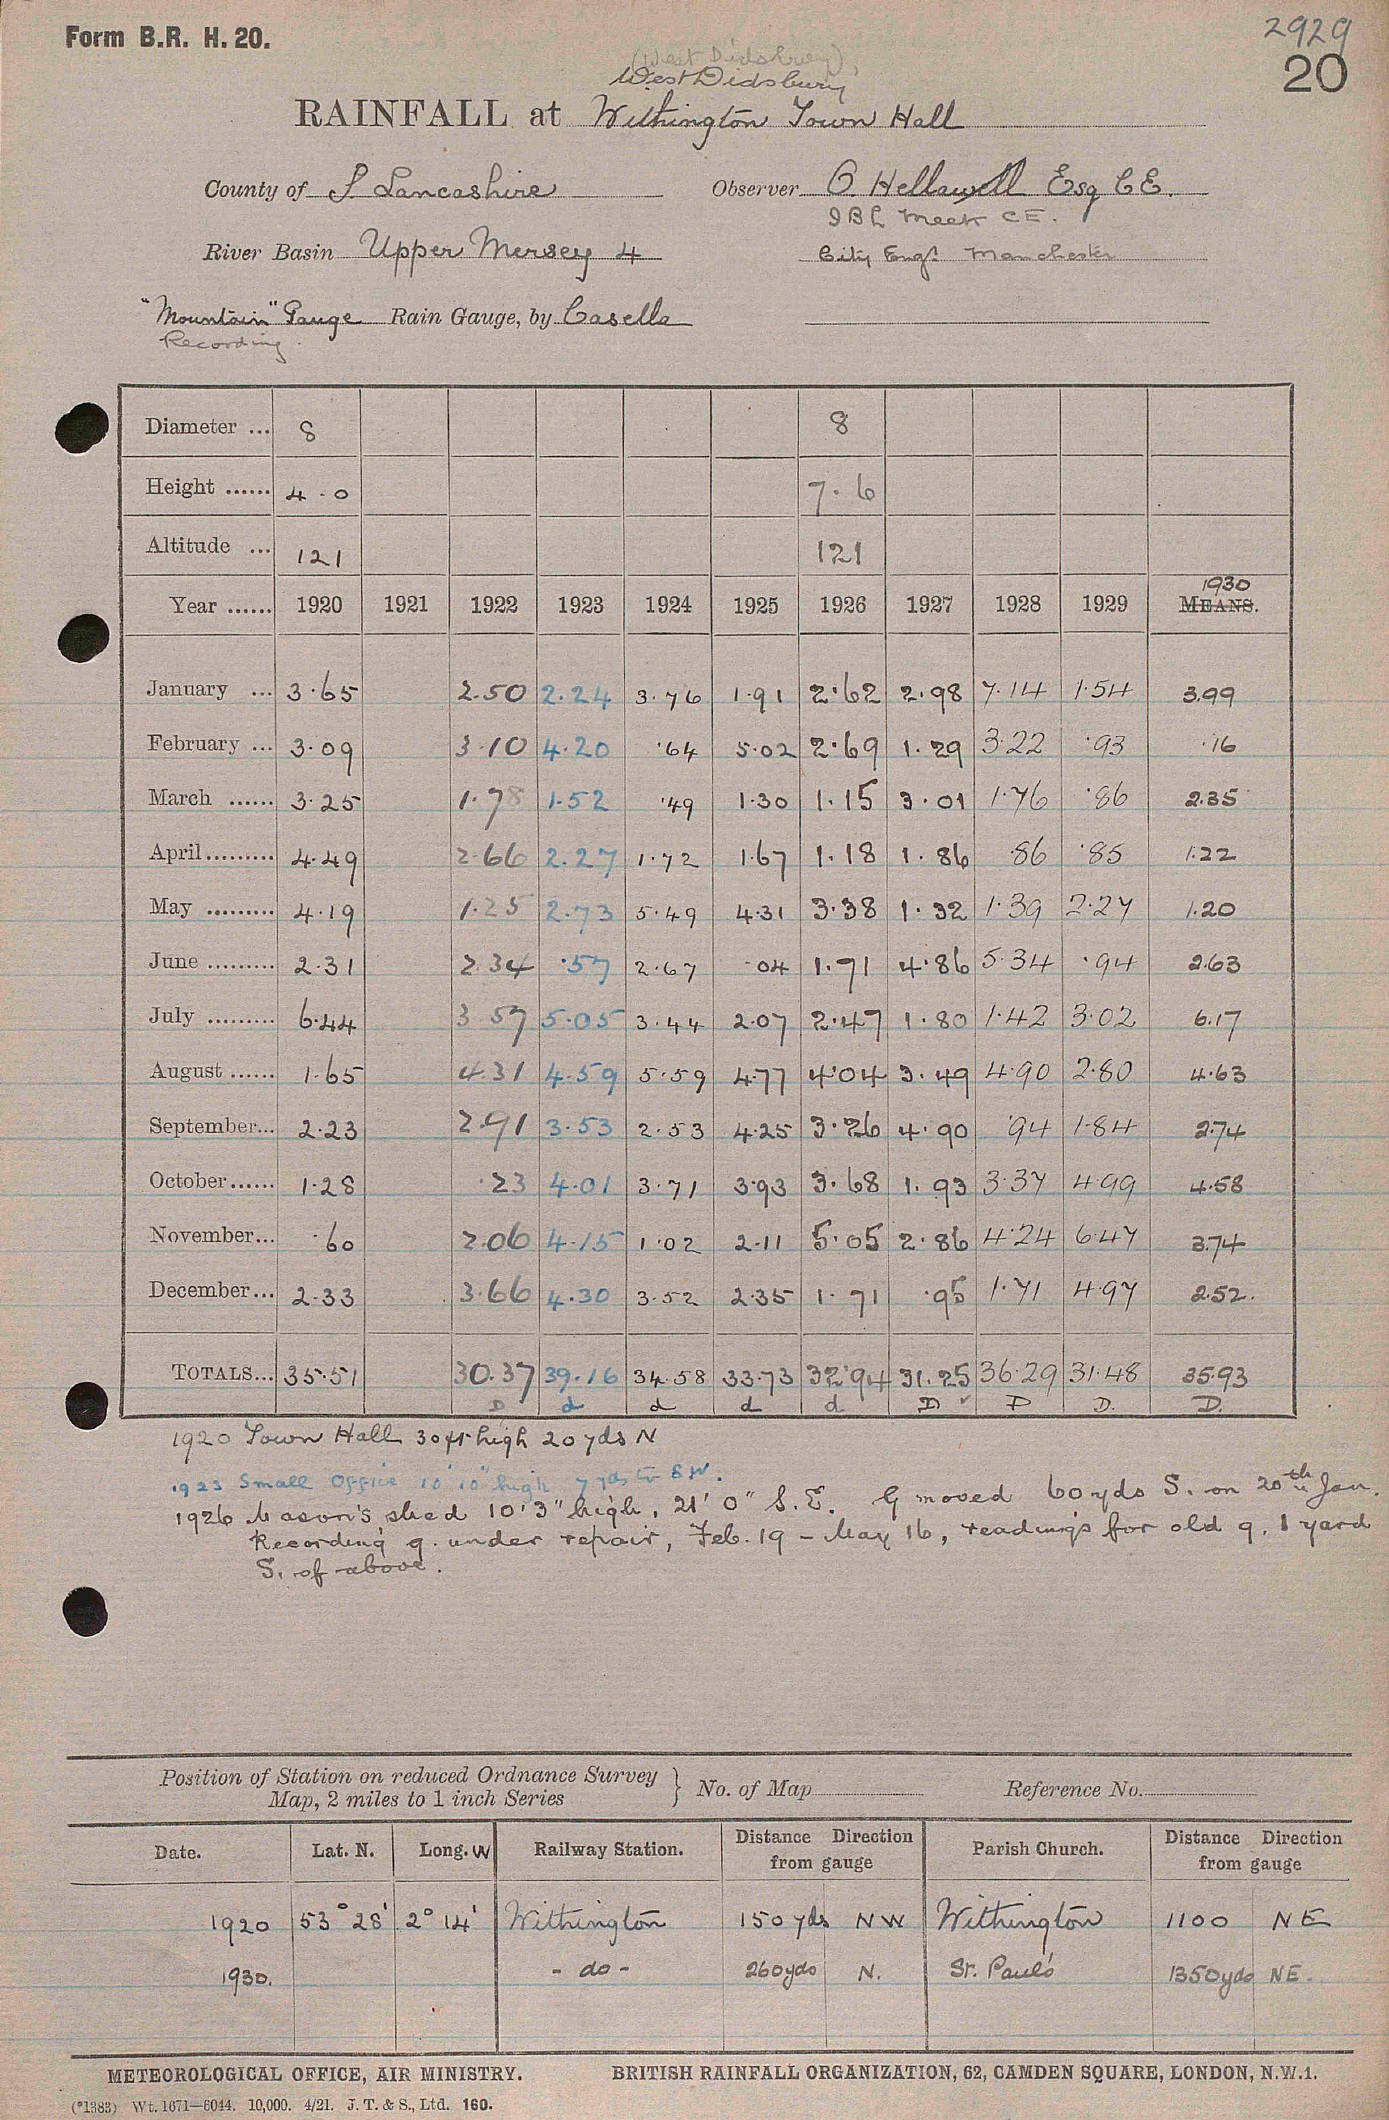 Form B.R. H. 20.
2929
20
(West Didsbury)
West Didsbury
RAINFALL at Withington Town Hall
County of S Lancashire Observer O. Hellawell Esq CE.
J B L Meek CE.
River Basin Upper Mersey 4 City Engr Manchester
"Mountain" Gauge Rain Gauge, by Casella
Recording.
Diameter ... 8 8
Height ...... 4.0 7.6
Altitude ... 121 121
1930
Year ...... 1920 1921 1922 1923 1924 1925 1926 1927 1928 1929 MEANS.
January ... 3.65 2.50 2.24 3.76 1.91 2.62 2.98 7.14 1.54 3.99
February ... 3.09 3.10 4.20 .64 5.02 2.69 1.29 3.22 .93 .16
March ...... 3.25 1.78 1.52 .49 1.30 1.15 3.01 1.76 .86 2.35
April......... 4.49 2.66 2.27 1.72 1.67 1.18 1.86 .86 .85 1.22
May ......... 4.19 1.25 2.73 5.49 4.31 3.38 1.32 1.39 2.27 1.20
June ......... 2.31 2.34 .57 2.67 .04 1.71 4.86 5.34 .94 2.63
July ......... 6.44 3.57 5.05 3.44 2.07 2.47 1.80 1.42 3.02 6.17
August ...... 1.65 4.31 4.59 5.59 4.77 4.04 3.49 4.90 2.80 4.63
September... 2.23 2.91 3.53 2.53 4.25 3.26 4.90 .94 1.84 2.74
October...... 1.28 .23 4.01 3.71 3.93 3.68 1.93 3.37 4.99 4.58
November... .60 2.06 4.15 1.02 2.11 5.05 2.86 4.24 6.47 3.74
December... 2.33 3.66 4.30 3.52 2.35 1.71 .95 1.71 4.97 2.52.
TOTALS... 35.51 30.37 39.16 34.58 33.73 32.94 31.25 36.29 31.48 35.93
D d d d d D ✓ D D. D.
1920 Town Hall 30ft high 20 yds N
1923 Small Office 10' 10" high 7 yds to SW.
1926 Mason's shed 10'3" high, 21' 0" S.E. G moved 60 yds S. on 20th Jan.
Recording g. under repair, Feb. 19 - May 16, readings for old g. 1 yard
S. of above.
Position of Station on reduced Ordnance Survey
Map, 2 miles to 1 inch Series } No. of Map Reference No.
Date. Lat. N. Long. W Railway Station. Distance Direction from gauge Parish Church. Distance Direction from gauge
1920 53° 28' 2° 14' Withington 150 yds NW Withington 1100 NE
1930. - do - 260 yds N. St. Paul's 1350 yds NE.
METEOROLOGICAL OFFICE, AIR MINISTRY. BRITISH RAINFALL ORGANIZATION, 62, CAMDEN SQUARE, LONDON, N.W.1.
(*1383) Wt. 1671—6044. 10,000. 4/21. J. T. & S., Ltd. 160.